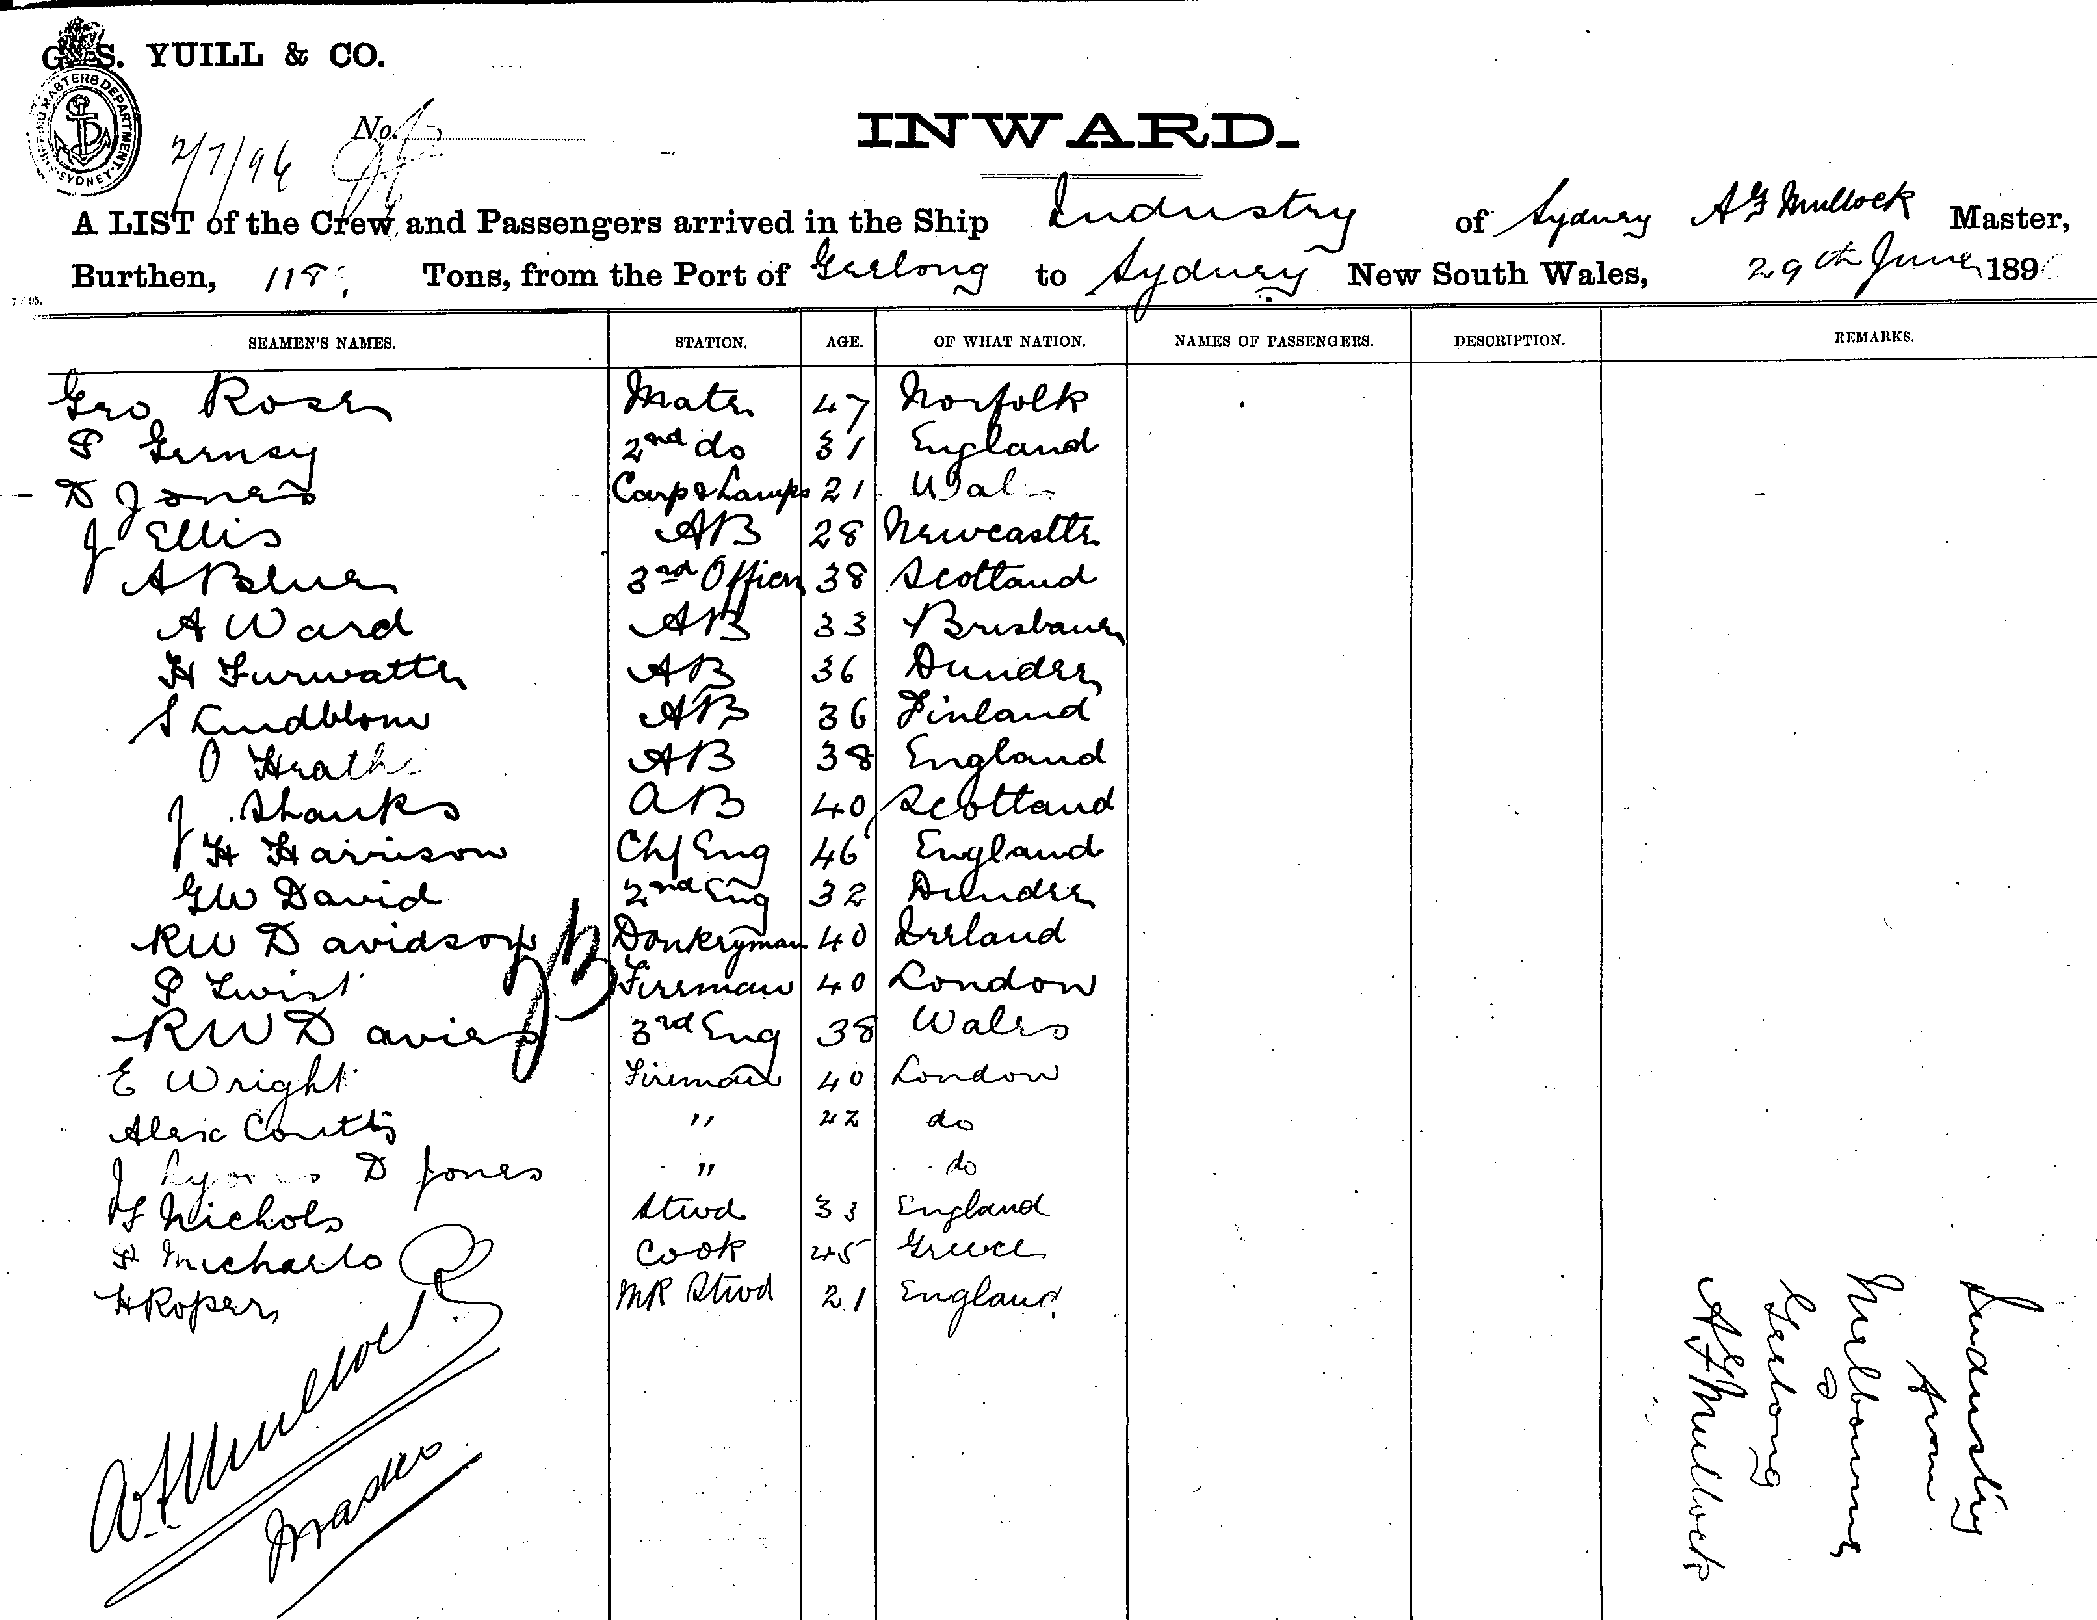 G. S. YUILL & CO.
SHIPPING MASTERS DEPARTMENT SYDNEY
2/7/96 No.
INWARD.
A LIST of the Crew and Passengers arrived in the Ship Industry of Sydney A G Mullock Master,
Burthen, 118 Tons, from the Port of Geelong to Sydney New South Wales, 29th June 189
SEAMEN'S NAMES. STATION. AGE. OF WHAT NATION. NAMES OF PASSENGERS. DESCRIPTION. REMARKS.
Geo Rose Mate 47 Norfolk
P Gurney 2nd do 31 England
D Jones Carp & Lamps 21 Wal
J Ellis AB 28 Newcastle
A Blue 3rd Officer 38 Scotland
A Ward AB 33 Brisbane
H Furwatte AB 36 Dundee
S Lindblom AB 36 Finland
O Heath AB 38 England
J Shanks AB 40 Scotland
J H Harrison Chf Eng 46 England
G W David 2nd Eng 32 Dundee
R W Davidson Donkeyman 40 Ireland
P Twist Fireman 40 London
R W Davies 3rd Eng 38 Wales
E Wright Fireman 40 London
Alex Coutts " 42 do
J Lyons D Jones " do
F Nichols Stwd 33 England
P Michaelo Cook 45 Greece
H Roper MR Stwd 21 England
A G Mullock
Master
Industry
from
Melbourne
&
Geelong
A G Mullock